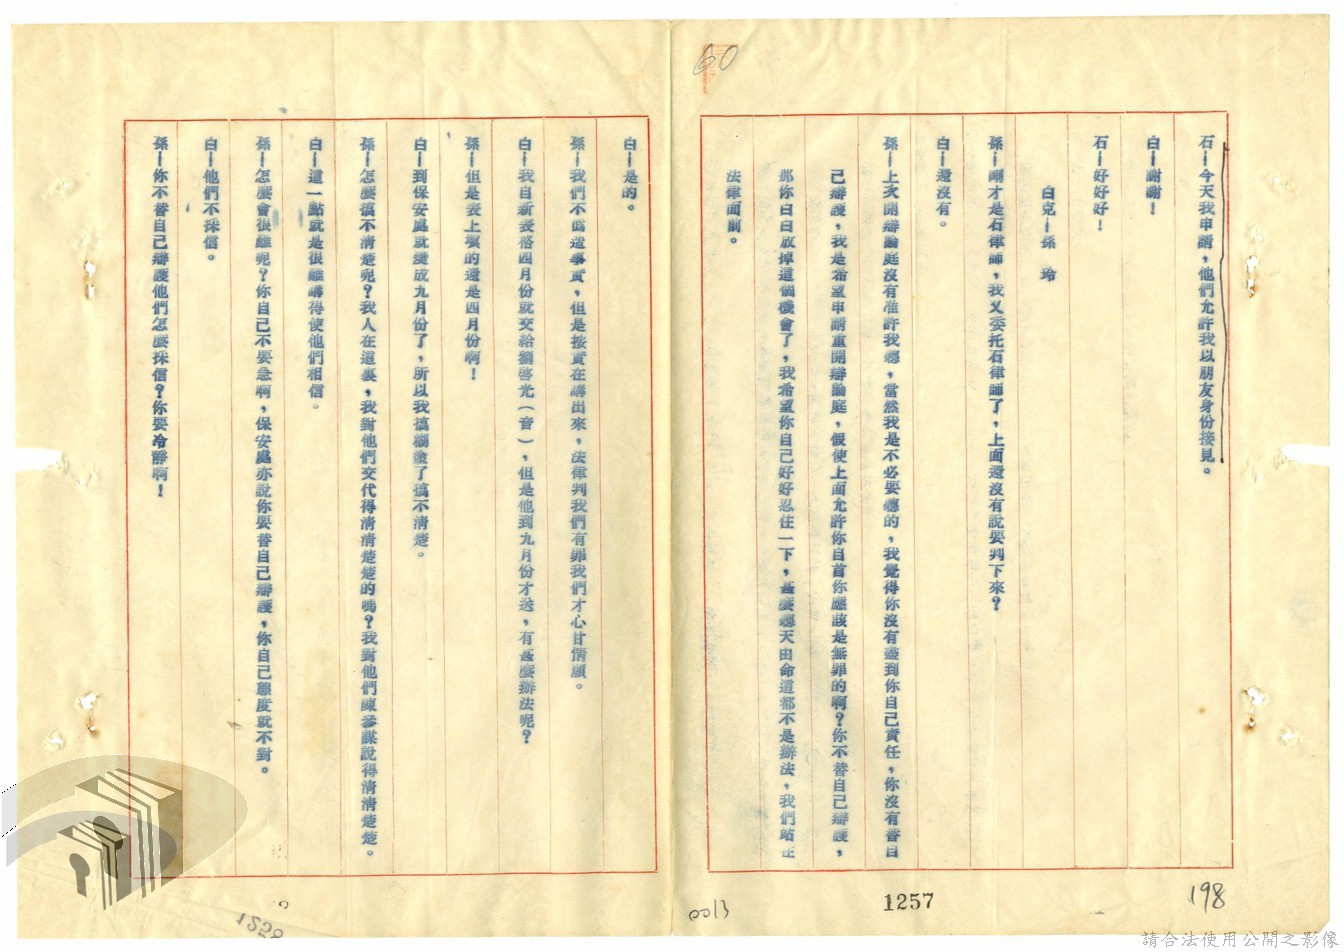 60
石—今天我申請，他們允許我以朋友身份接見。
白—謝謝！
石—好好好！
白克—孫　玲
孫—剛才是石律師，我又委托石律師了，上面還沒有說要判下來？
白—還沒有。
孫—上次開辯論庭沒有准許我聽，當然我是不必要聽的，我覺得你沒有盡到你自己責任，你沒有替自
己辯護，我是希望申請重開辯論庭，假使上面允許你自首你應該是無罪的啊？你不替自己辯護，
那你白白放掉這個機會了，我希望你自己好好忍住一下，甚麼聽天由命這都不是辦法，我們站在
法律面前。
白—是的。
孫—我們不偽造事實，但是按實在講出來，法律判我們有罪我們才心甘情願。
白—我自新表格四月份就交給劉啓光（音），但是他到九月份才送，有甚麼辦法呢？
孫—但是表上填的還是四月份啊！
白—到保安處就變成九月份了，所以我搞糊塗了搞不清楚。
孫—怎麼搞不清楚呢？我人在這裏，我對他們交代得清清楚楚的嗎？我對他們陳參謀說得清清楚楚。
白—這一點就是很難講得使他們相信。
孫—怎麼會很難呢？你自己不要急啊，保安處亦說你要替自己辯護，你自己態度就不對。
白—他們不採信。
孫—你不替自己辯護他們怎麼採信？你要冷靜啊！
0013
1257
198
1258
請合法使用公開之影像